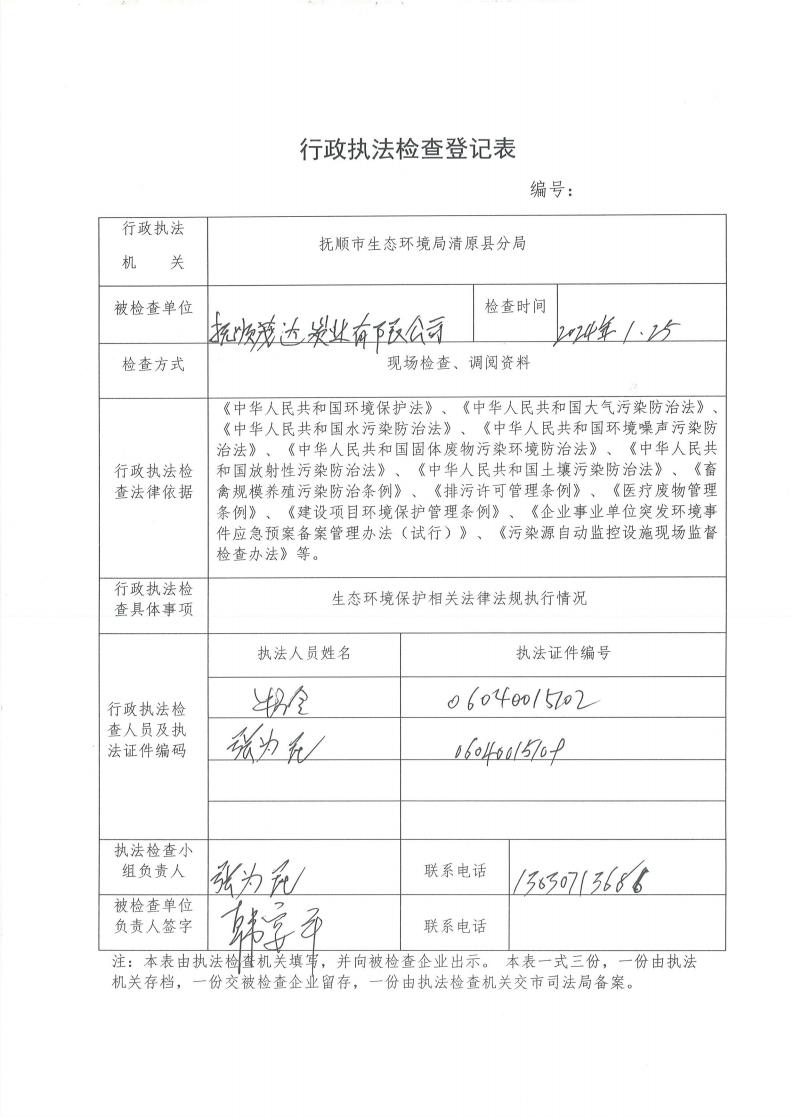 行政执法检查登记表
编号：
行政执法
机 关
抚顺市生态环境局清原县分局
被检查单位
抚顺茂达炭业有限公司
检查时间
2024年1.25
检查方式
现场检查、调阅资料
行政执法检
查法律依据
《中华人民共和国环境保护法》、《中华人民共和国大气污染防治法》、
《中华人民共和国水污染防治法》、《中华人民共和国环境噪声污染防
治法》、《中华人民共和国固体废物污染环境防治法》、《中华人民共
和国放射性污染防治法》、《中华人民共和国土壤污染防治法》、《畜
禽规模养殖污染防治条例》、《排污许可管理条例》、《医疗废物管理
条例》、《建设项目环境保护管理条例》、《企业事业单位突发环境事
件应急预案备案管理办法（试行）》、《污染源自动监控设施现场监督
检查办法》等。
行政执法检
查具体事项
生态环境保护相关法律法规执行情况
行政执法检
查人员及执
法证件编码
执法人员姓名
执法证件编号
06040015102
张为
06040015109
执法检查小
组负责人
张为
联系电话
13630713686
被检查单位
负责人签字
韩
联系电话
注：本表由执法检查机关填写，并向被检查企业出示。 本表一式三份，一份由执法
机关存档，一份交被检查企业留存，一份由执法检查机关交市司法局备案。